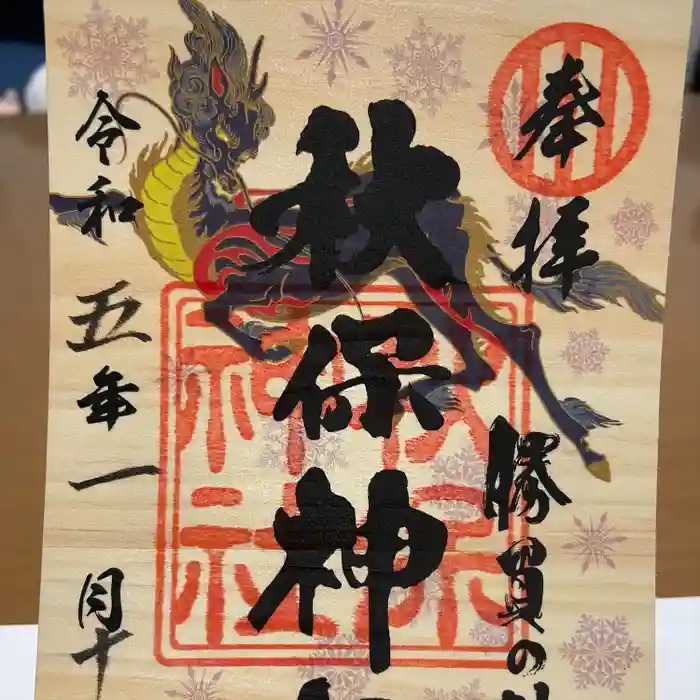 奉拝
勝負の
秋保神
秋保
神社
令和五年一月十